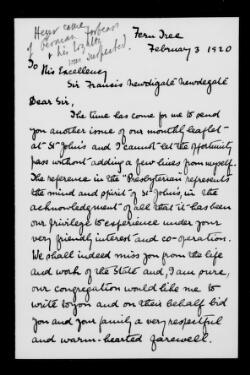 Heyer came
of German forbears
& his loyalty
was suspected.
Fern Tree
February 3 1920
To His Excellency
Sir Francis Newdigate Newdegate
Dear Sir,
The time has come for me to send
you another issue of our monthly leaflet
at St John's and I cannot let the opportunity
pass without adding a few lines from myself.
The reference in the "Presbyterian" represents
the mind and spirit of St John's, in the
acknowledgment of all that it has been
our privilege to experience under your
very friendly interest and co-operation.
We shall indeed miss you from the life
and work of the State and, I am sure,
our congregation would like me to
write to you and on their behalf bid
you and your family a very respectful
and warm-hearted farewell.